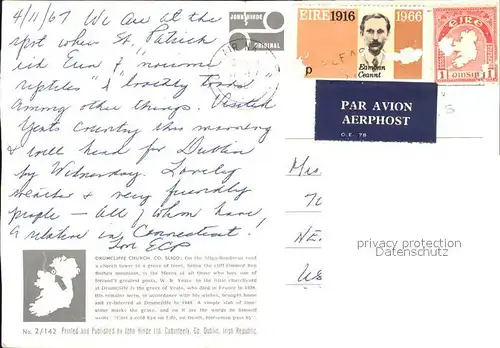 4/11/67 We are at the
spot when St. Patrick
rid Erin of "noisome
reptiles" & loathly toads
among other things. Visited
Yeats country this morning
& will head for Dublin
by Wednesday. Lovely
weather & very friendly
people - all of whom have
a relation in Connecticut!
Lov ECP
JOHN HINDE
ORIGINAL
EIRE 1916 1966
Eamonn
Ceannt
p
éire
1 pinginn 1
PAR AVION
AERPHOST
O.E. 78
DRUMCLIFFE CHURCH, CO. SLIGO. On the Sligo-Bundoran road
a church tower in a grove of trees, below the cliff-rimmed Ben
Bulben mountain, is the Mecca of all those who love, one of
Ireland's greatest poets, W. B. Yeats. In the little churchyard
at Drumcliffe is the grave of Yeats, who died in France in 1939.
His remains were, in accordance with his wishes, brought home
and re-interred at Drumcliffe in 1948. A simple slab of lime-
stone marks the grave, and on it are the words he himself
wrote: "Cast a cold Eye on Life, on Death, Horseman pass by".
No. 2/142 Printed and Published by John Hinde Ltd. Cabinteely, Co. Dublin, Irish Republic.
privacy protection
Datenschutz